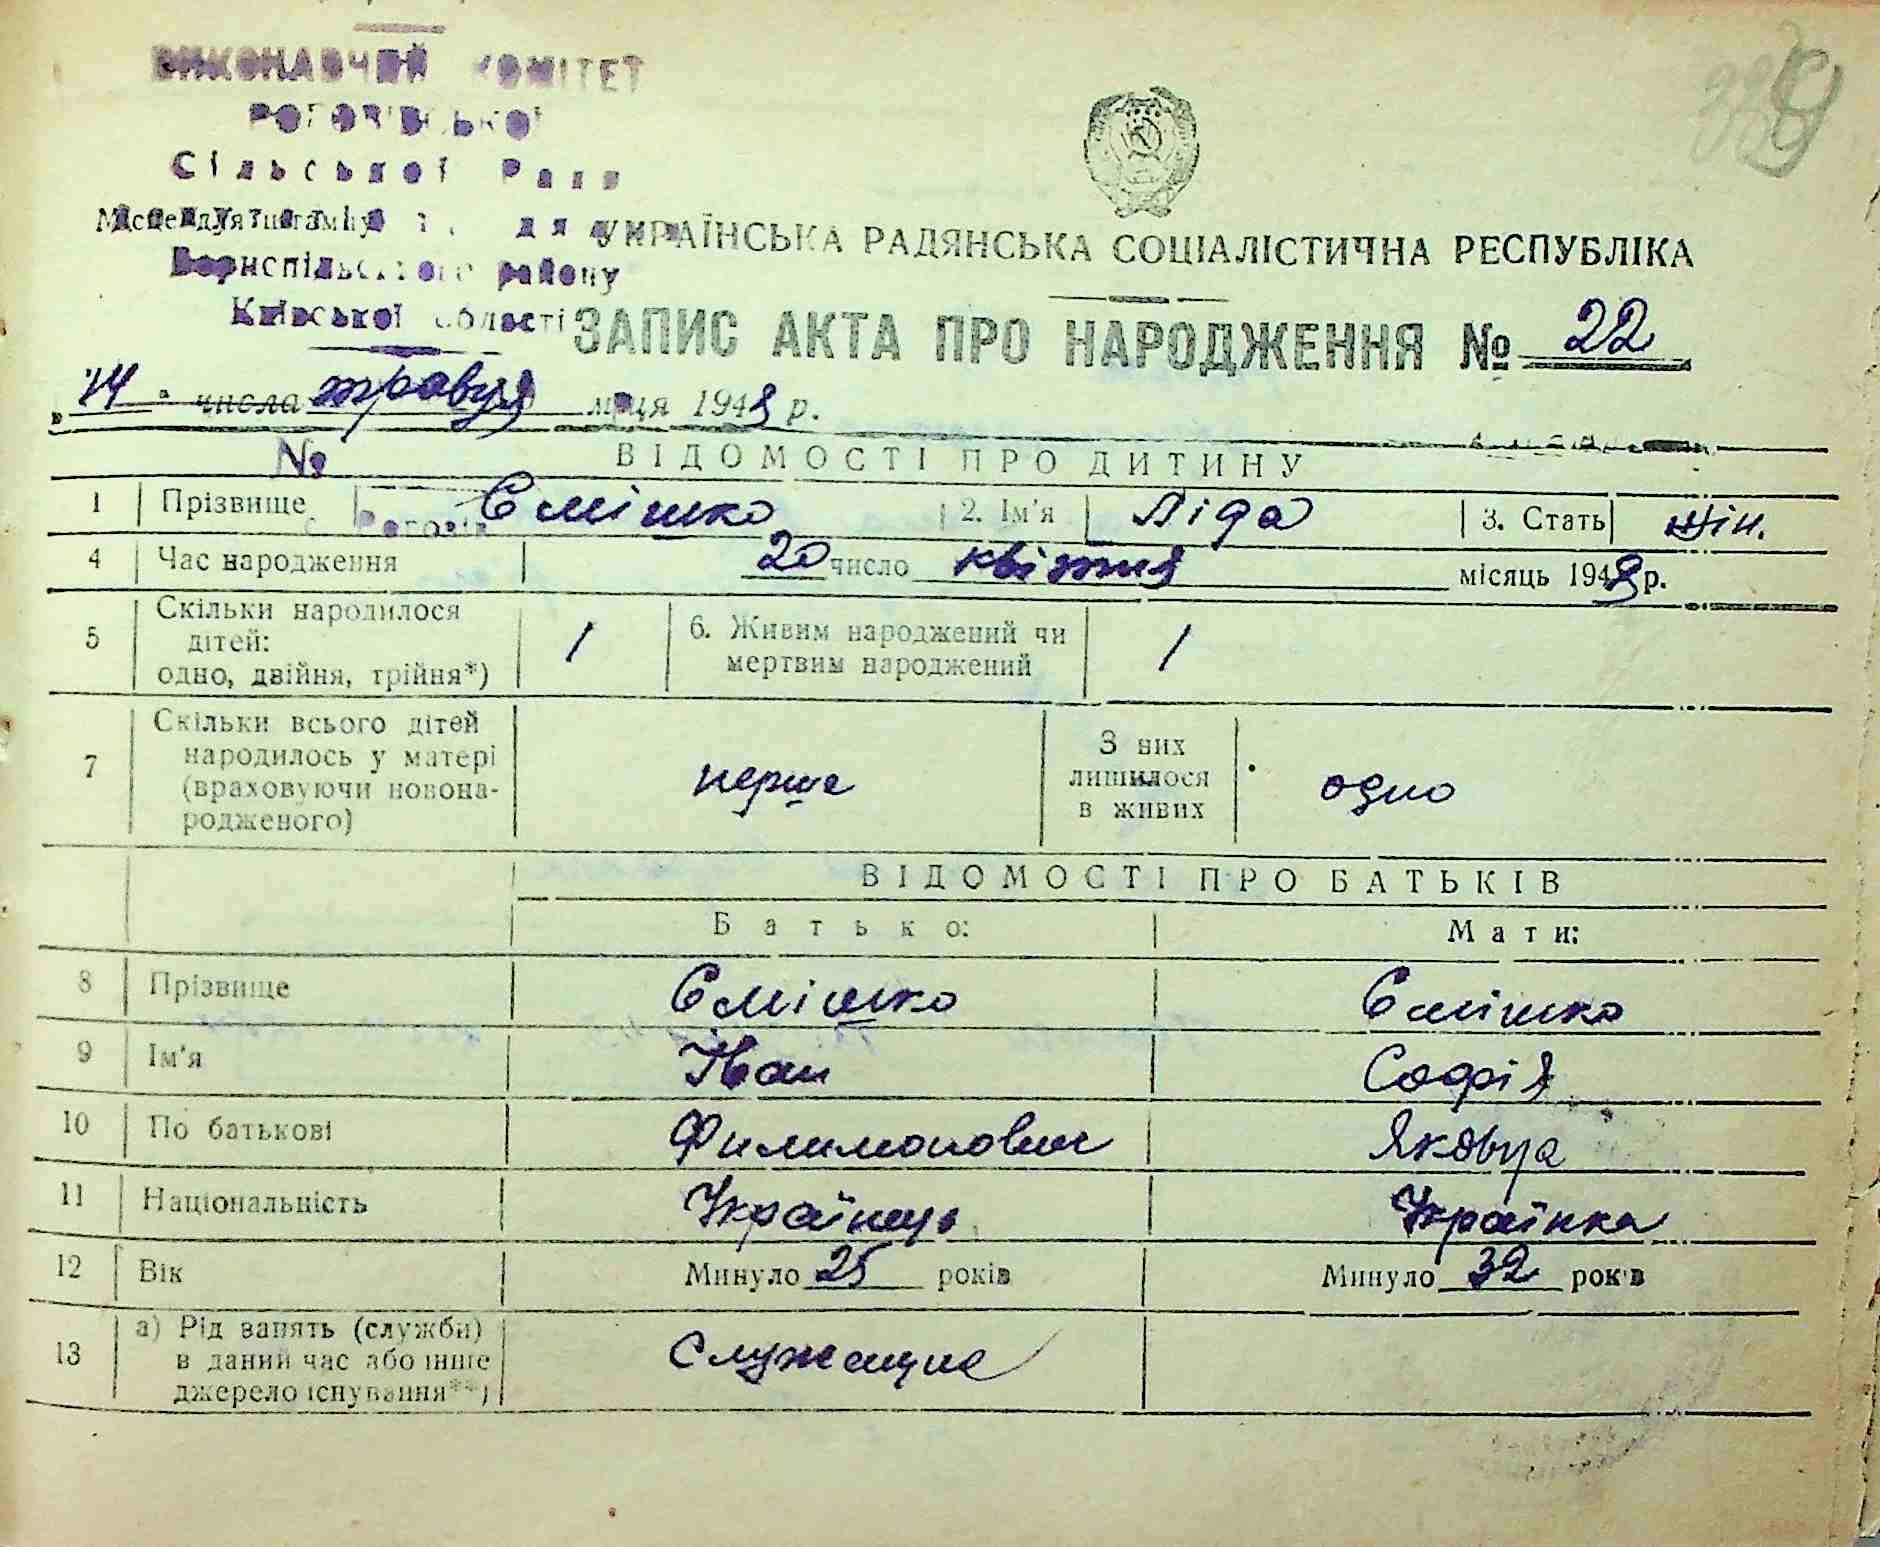 ВИКОНАВЧИЙ КОМІТЕТ
РОГОЗІВСЬКОЇ
Сільської Ради
Бориспільського району
Київської області
УКРАЇНСЬКА РАДЯНСЬКА СОЦІАЛІСТИЧНА РЕСПУБЛІКА
ЗАПИС АКТА ПРО НАРОДЖЕННЯ № 22
"14" числа травня м-ця 1948 р.
№ ВІДОМОСТІ ПРО ДИТИНУ
1 Прізвище Ємішко 2. Ім'я Ліда 3. Стать жін.
4 Час народження 20 число квітня місяць 1948 р.
5 Скільки народилося дітей: одно, двійня, трійня*) 1 6. Живим народжений чи мертвим народжений 1
7 Скільки всього дітей народилось у матері (враховуючи новонародженого) перше З них лишилося в живих одно
ВІДОМОСТІ ПРО БАТЬКІВ
Батько: Мати:
8 Прізвище Ємішко Ємішко
9 Ім'я Іван Софія
10 По батькові Филимонович Яковна
11 Національність Українець Українка
12 Вік Минуло 25 років Минуло 32 років
13 а) Рід занять (служби) в даний час або інше джерело існування**) Служащие